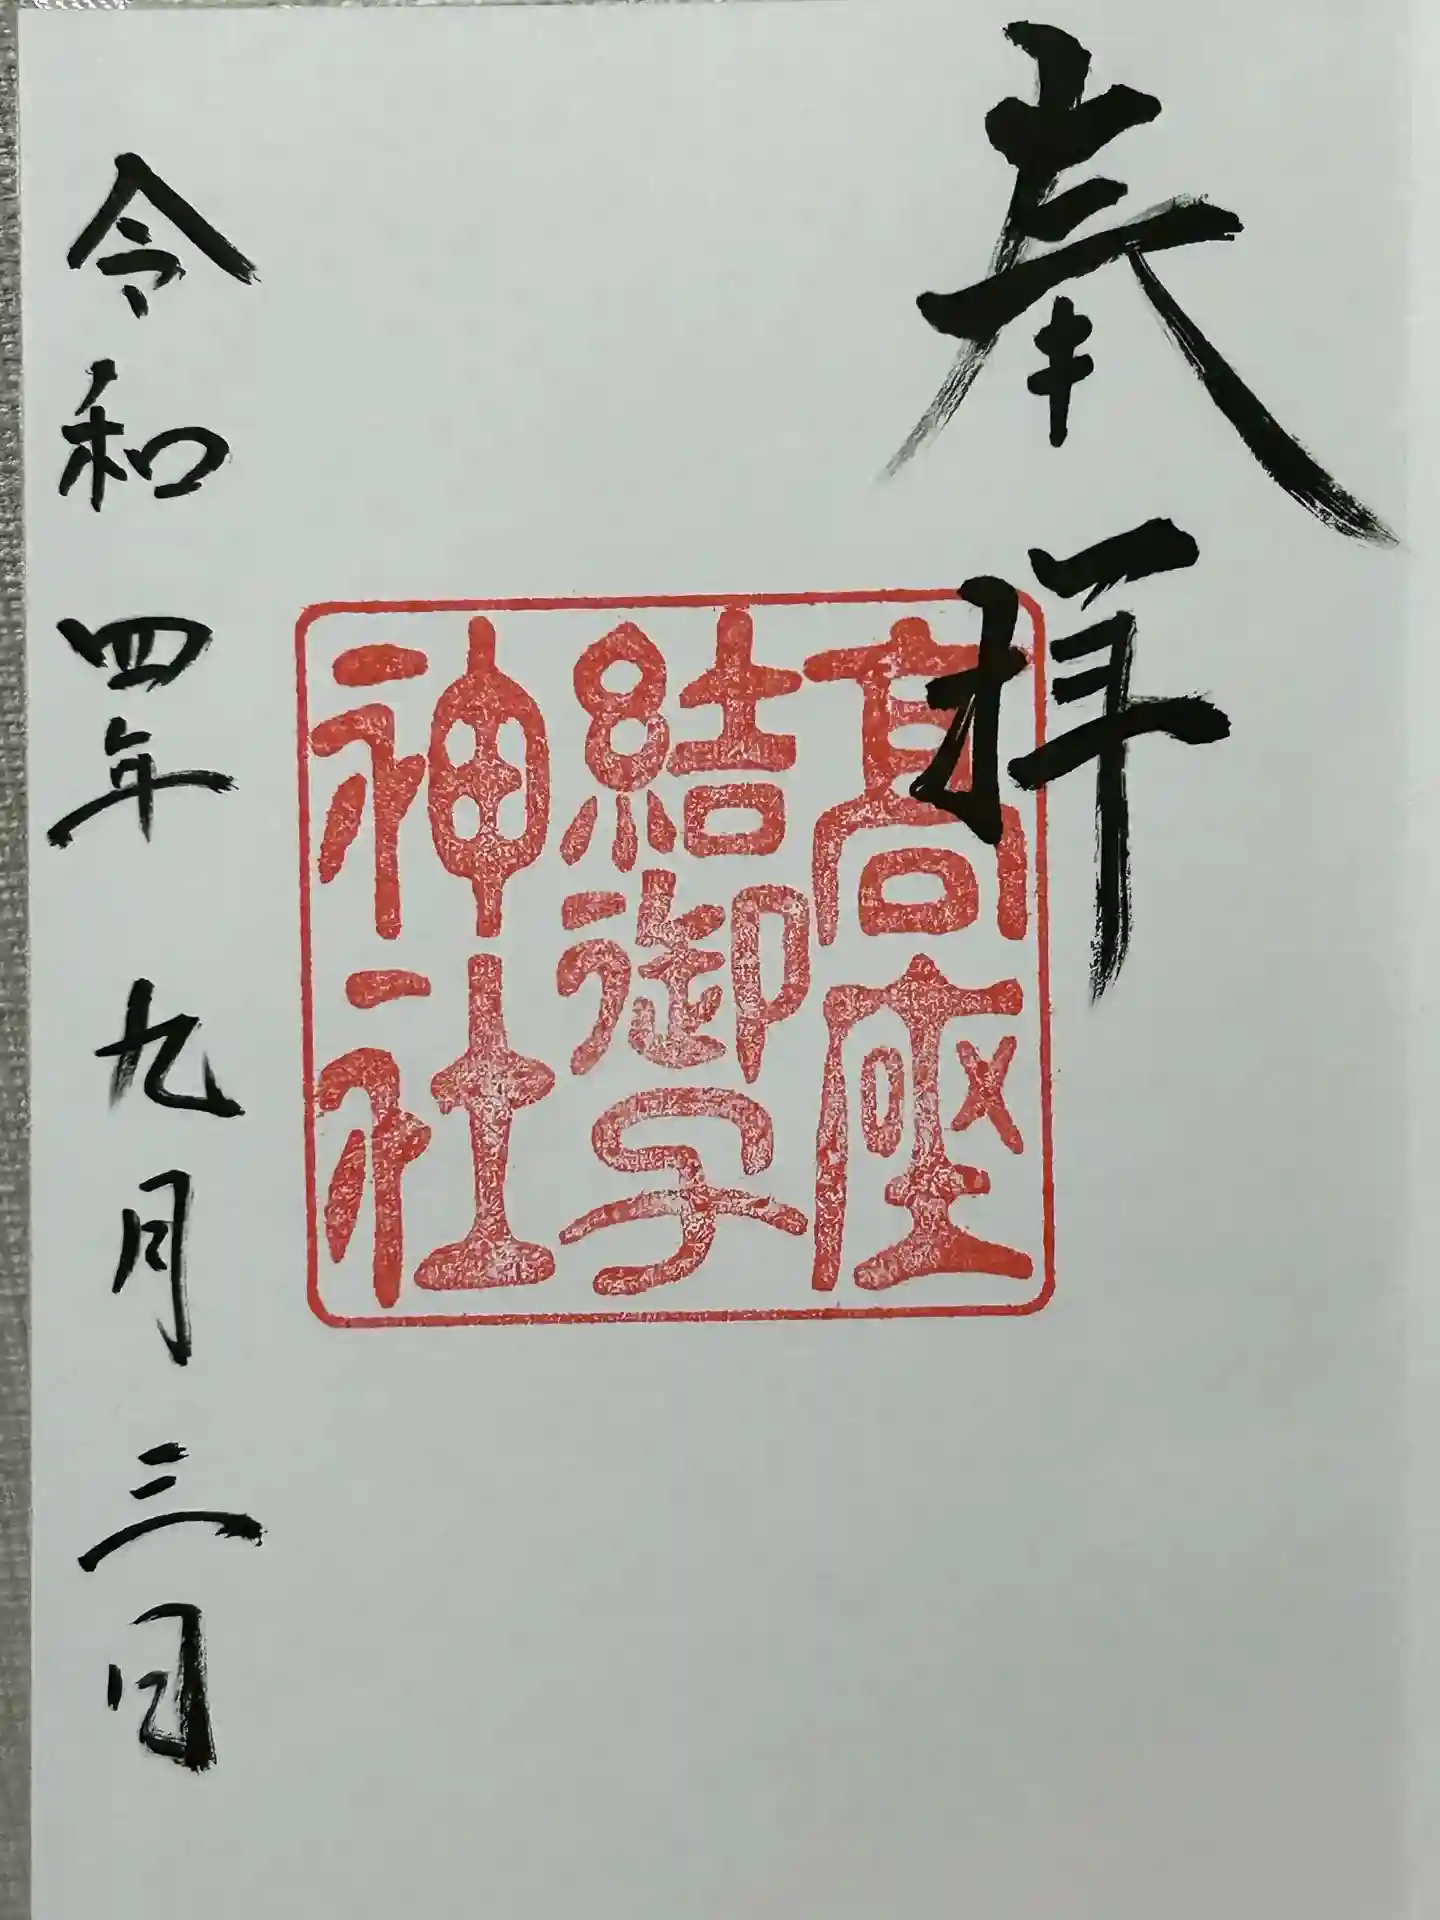 奉拝
高座
結御子
神社
令和四年九月三日